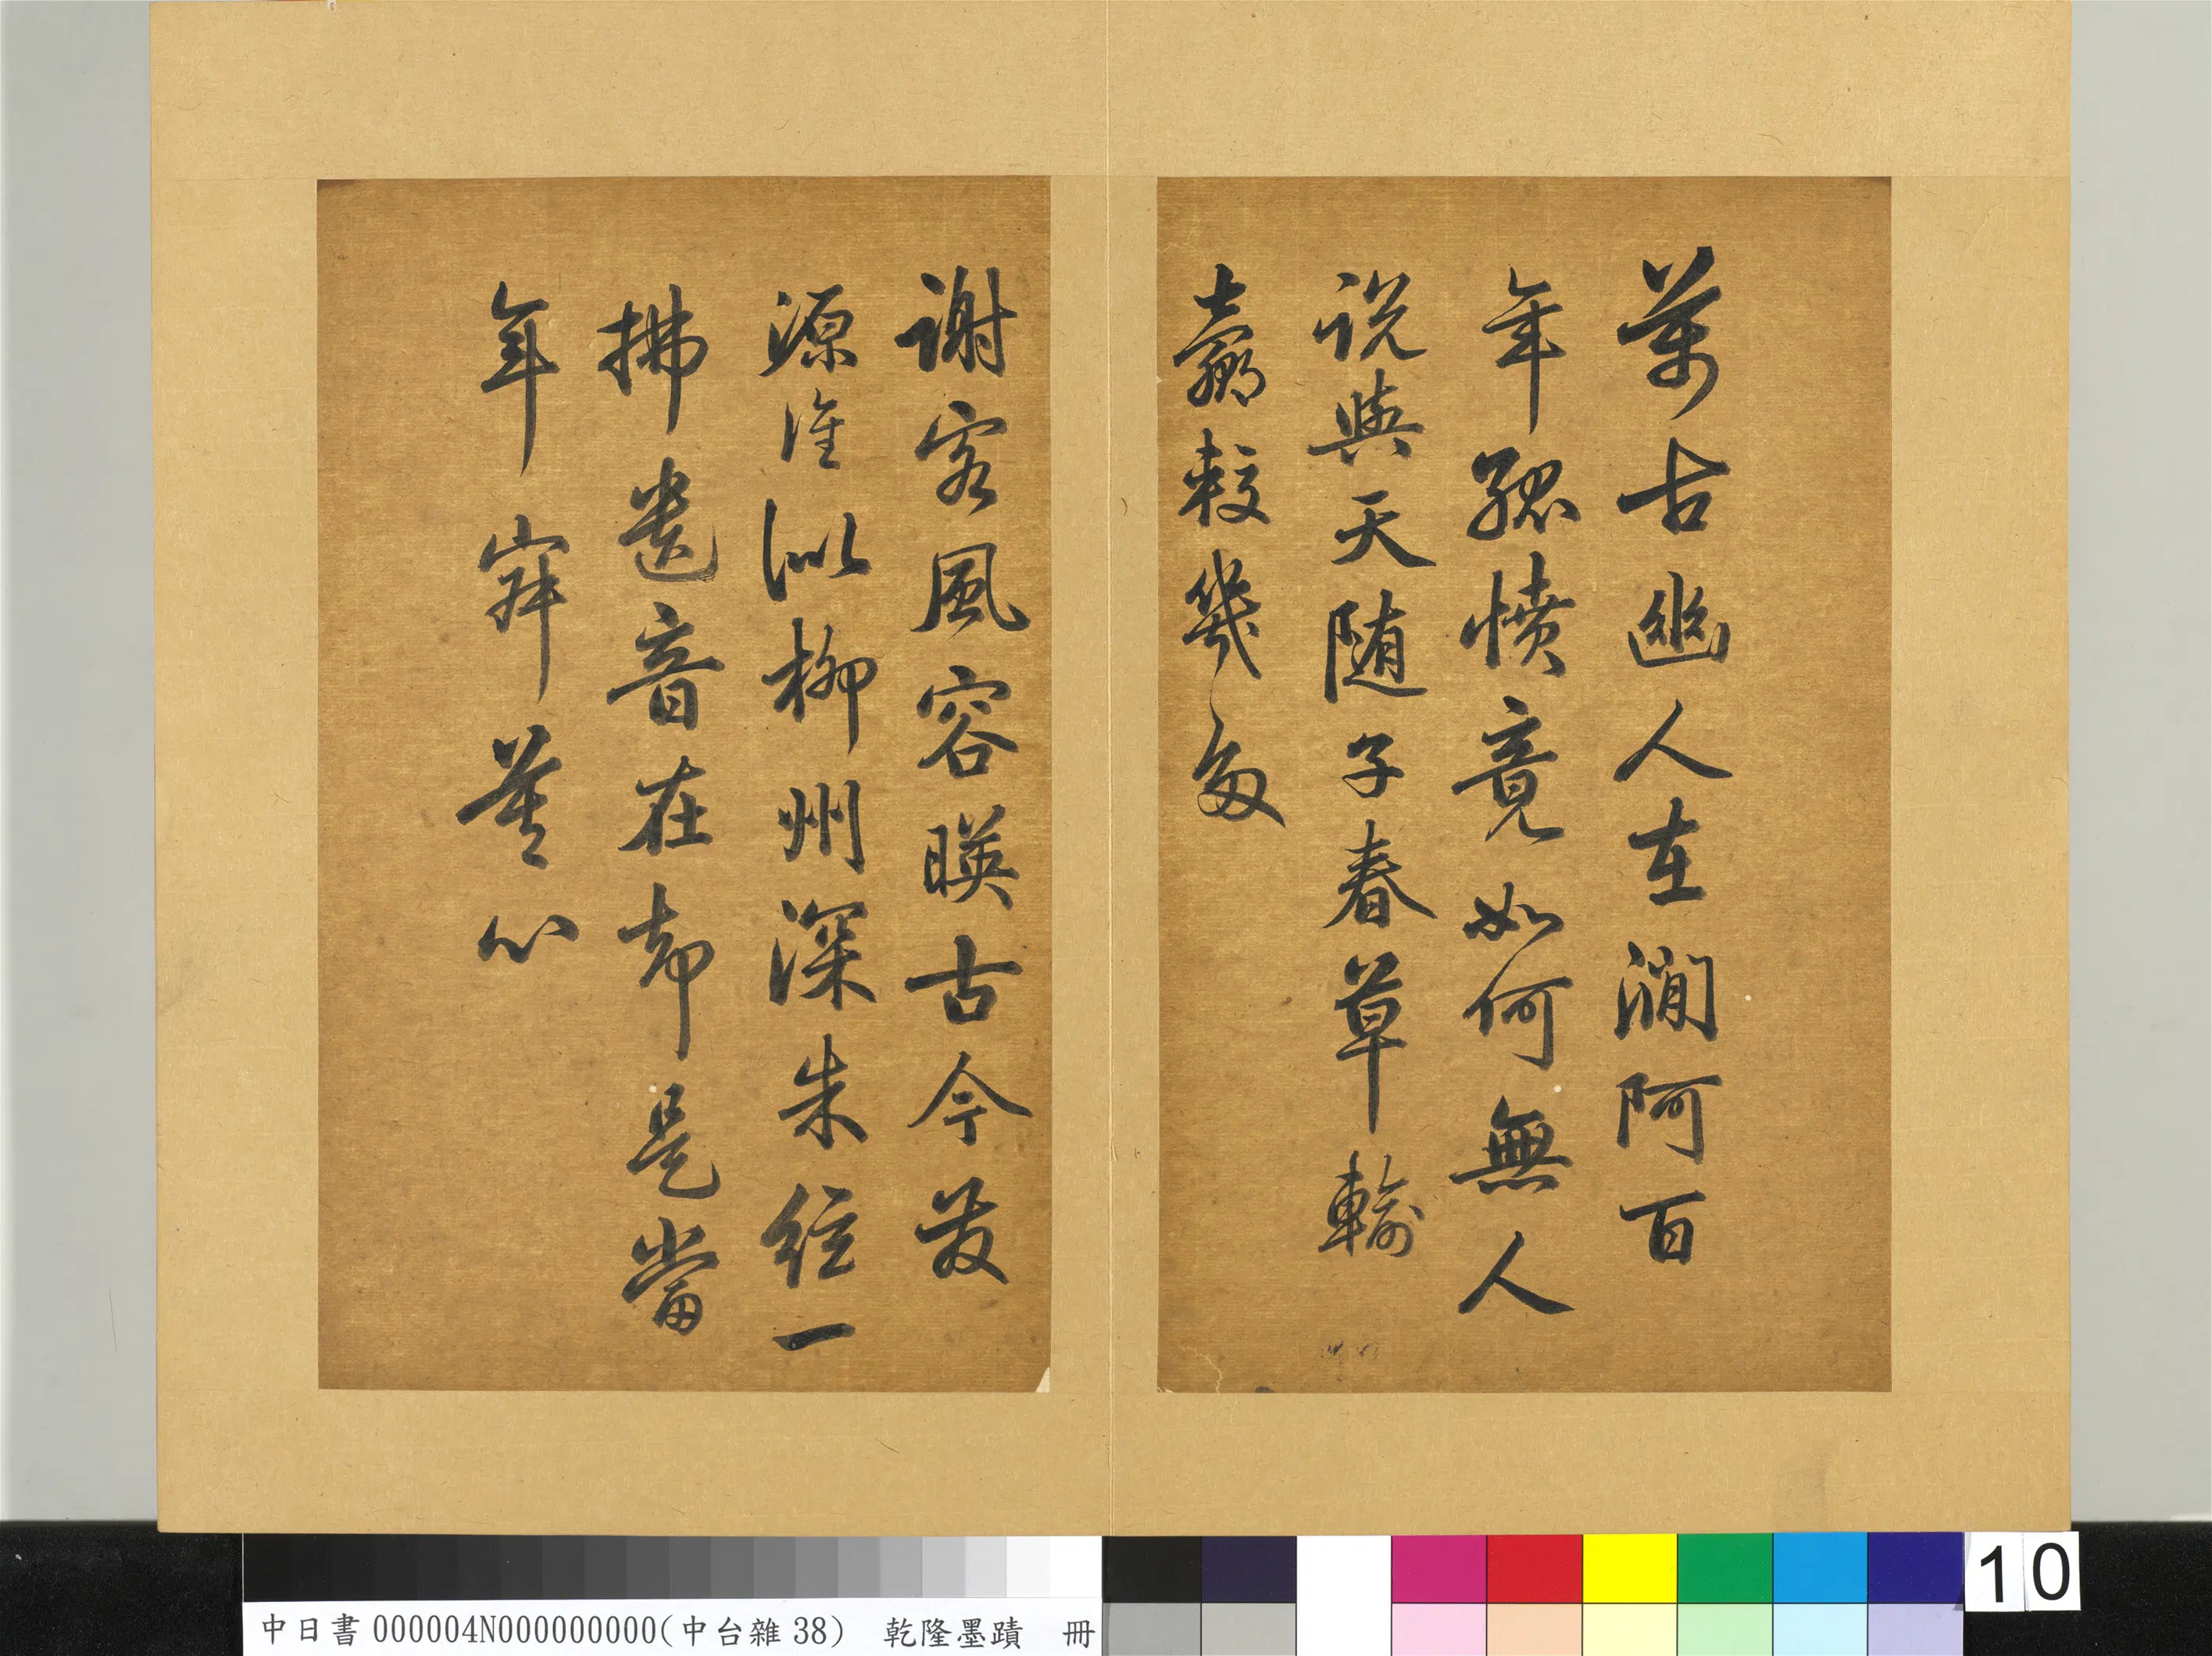 萬古幽人在澗阿百
年孤憤竟如何無人
說與天隨子春草輸
贏較幾多
謝客風容暎古今發
源誰似柳州深朱絃一
拂遺音在却是當
年寂莫心
中日書000004N000000000(中台雜38) 乾隆墨蹟 冊
10